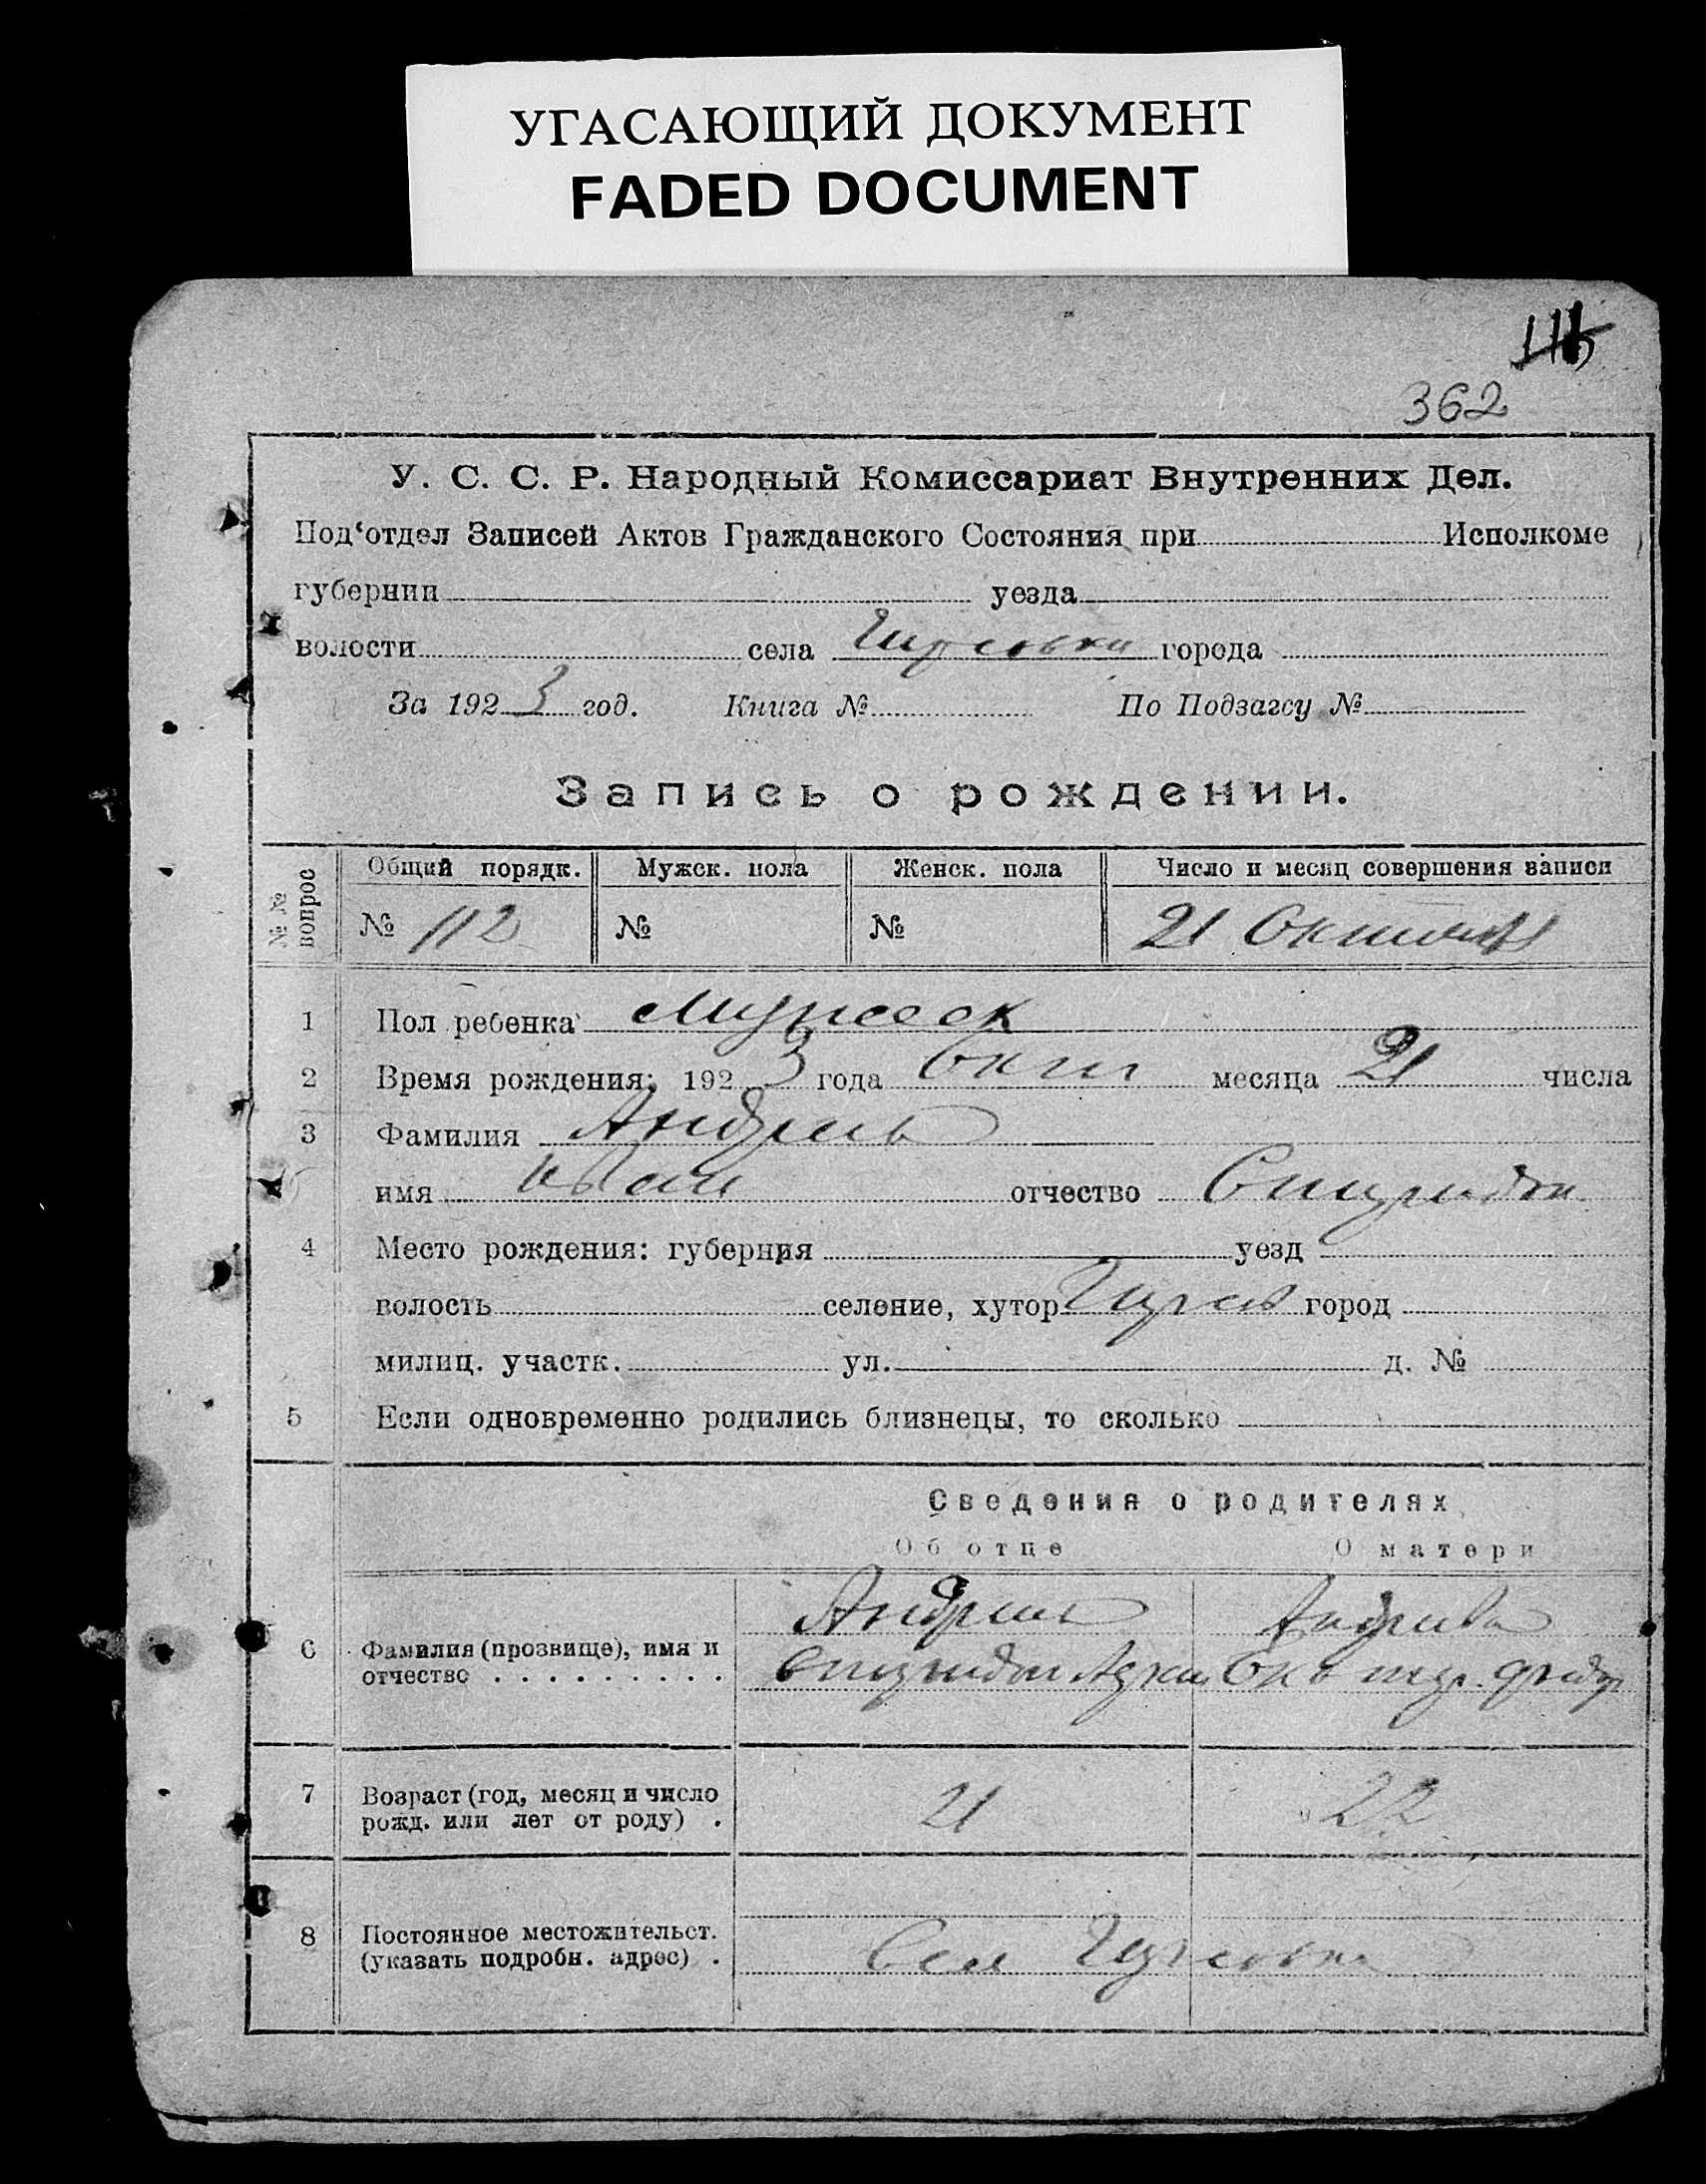 УГАСАЮЩИЙ ДОКУМЕНТ
FADED DOCUMENT
362
У. С. С. Р. Народный Комиссариат Внутренних Дел.
Под‘отдел Записей Актов Гражданского Состояния при Исполкоме
губернии уезда
волости села города
За 1923 год. Книга № По Подзагсу №
Запись о рождении.
№ № вопрос Общий порядк. Мужск. пола Женск. пола Число и месяц совершения записи
№ 112 № № 21
1 Пол ребенка
2 Время рождения: 1923 года Окт месяца 21 числа
3 Фамилия
имя Иван отчество Спиридон
4 Место рождения: губерния уезд
волость селение, хутор город
милиц. участк. ул. д. №
5 Если одновременно родились близнецы, то сколько
Сведения о родителях
Об отце О матери
6 Фамилия (прозвище), имя и
отчество . . . . . . . . . Спиридон
7 Возраст (год, месяц и число
рожд. или лет от роду) . 21 22
8 Постоянное местожительст.
(указать подробн. адрес) . Село